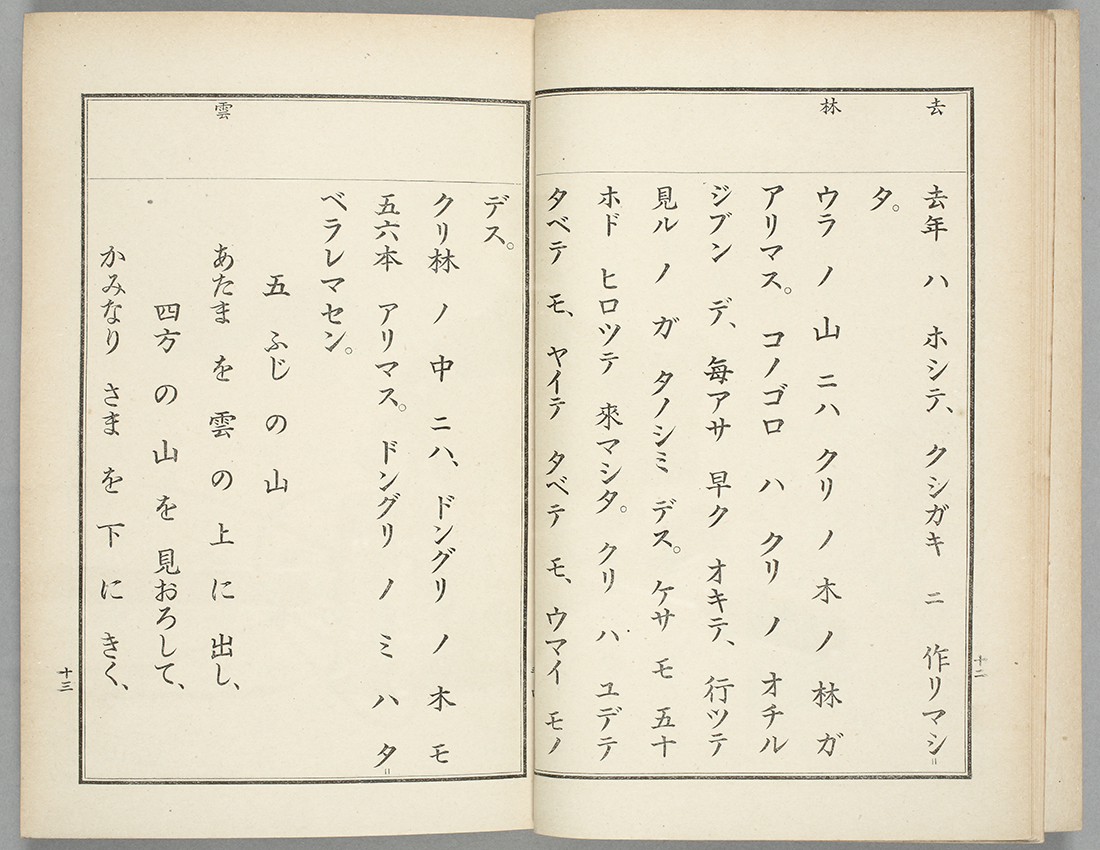 去
林
去年 ハ ホシテ、 クシガキ ニ 作リマシ＝
タ。
ウラ ノ 山 ニハ クリ ノ 木 ノ 林 ガ
アリマス。 コノゴロ ハ クリ ノ オチル
ジブン デ、 毎アサ 早ク オキテ、 行ツテ
見ル ノ ガ タノシミ デス。 ケサ モ 五十
ホド ヒロツテ 來マシタ。 クリ ハ ユデテ
タベテ モ、 ヤイテ タベテ モ、 ウマイ モノ
十二
雲
デス。
クリ林 ノ 中 ニハ、 ドングリ ノ 木 モ
五六本 アリマス。 ドングリ ノ ミ ハ タ＝
ベラレマセン。
五 ふじ の 山
あたま を 雲 の 上 に 出し、
四方 の 山 を 見おろして、
かみなり さま を 下 に きく、
十三